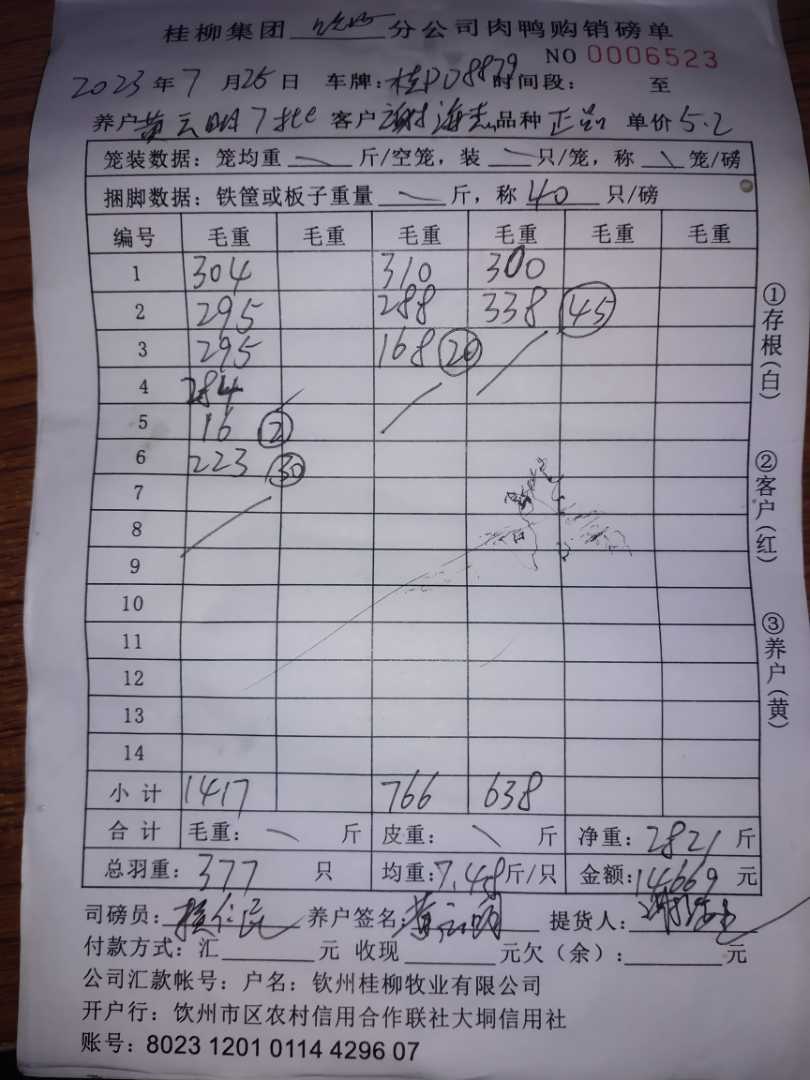 桂柳集团 分公司肉鸭购销磅单
NO 0006523
2023年7月25日 车牌:桂PD8879时间段: 至
养户黄云明7批 客户谢海志品种正品 单价5.2
笼装数据:笼均重 \ 斤/空笼,装 \ 只/笼,称 \ 笼/磅
捆脚数据:铁筐或板子重量 \ 斤,称 40 只/磅
编号 毛重 毛重 毛重 毛重 毛重 毛重
1 304 310 300
2 295 288 338 45
3 295 168 20
4 284
5 16 2
6 223 30
7
8
9
10
11
12
13
14
小计 1417 766 638
合计 毛重: \ 斤 皮重: \ 斤 净重:2821斤
总羽重:377 只 均重:7.48斤/只 金额:14669元
司磅员: 养户签名:黄云明 提货人:
付款方式:汇 元 收现 元欠(余): 元
公司汇款帐号:户名:钦州桂柳牧业有限公司
开户行:饮州市区农村信用合作联社大垌信用社
账号:8023 1201 0114 4296 07
①存根(白)
②客户(红)
③养户(黄)